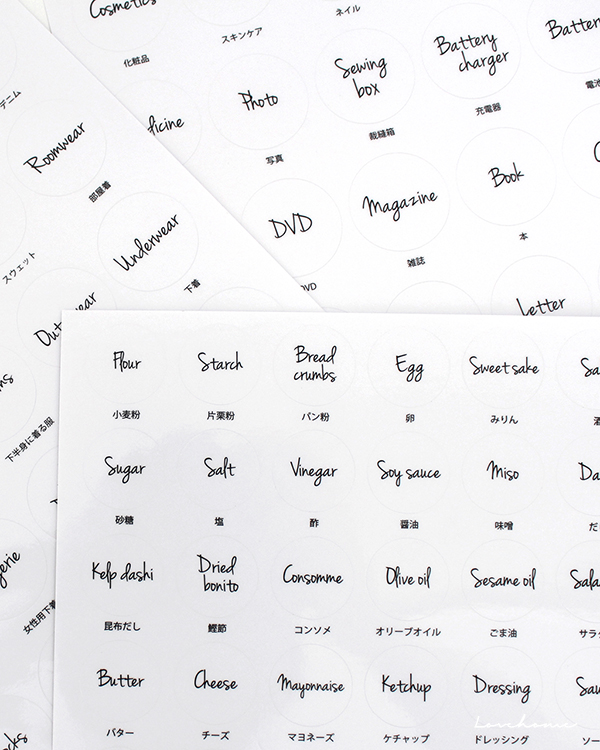 Cosmetics
化粧品
スキンケア
ネイル
Photo
写真
Sewing
box
裁縫箱
Battery
charger
充電器
Battery
DVD
DVD
Magazine
雑誌
Book
本
Letter
デニム
Roomwear
部屋着
Underwear
下着
スウェット
下半身に着る服
女性用下着
Flour
Starch
Bread
crumbs
Egg
Sweet sake
小麦粉
片栗粉
パン粉
卵
みりん
Sugar
Salt
Vinegar
Soy sauce
Miso
砂糖
塩
酢
醤油
味噌
Kelp dashi
Dried
bonito
Consomme
Olive oil
Sesame oil
昆布だし
鰹節
コンソメ
オリーブオイル
ごま油
Butter
Cheese
Mayonnaise
Ketchup
Dressing
バター
チーズ
マヨネーズ
ケチャップ
ドレッシング
Lovehome